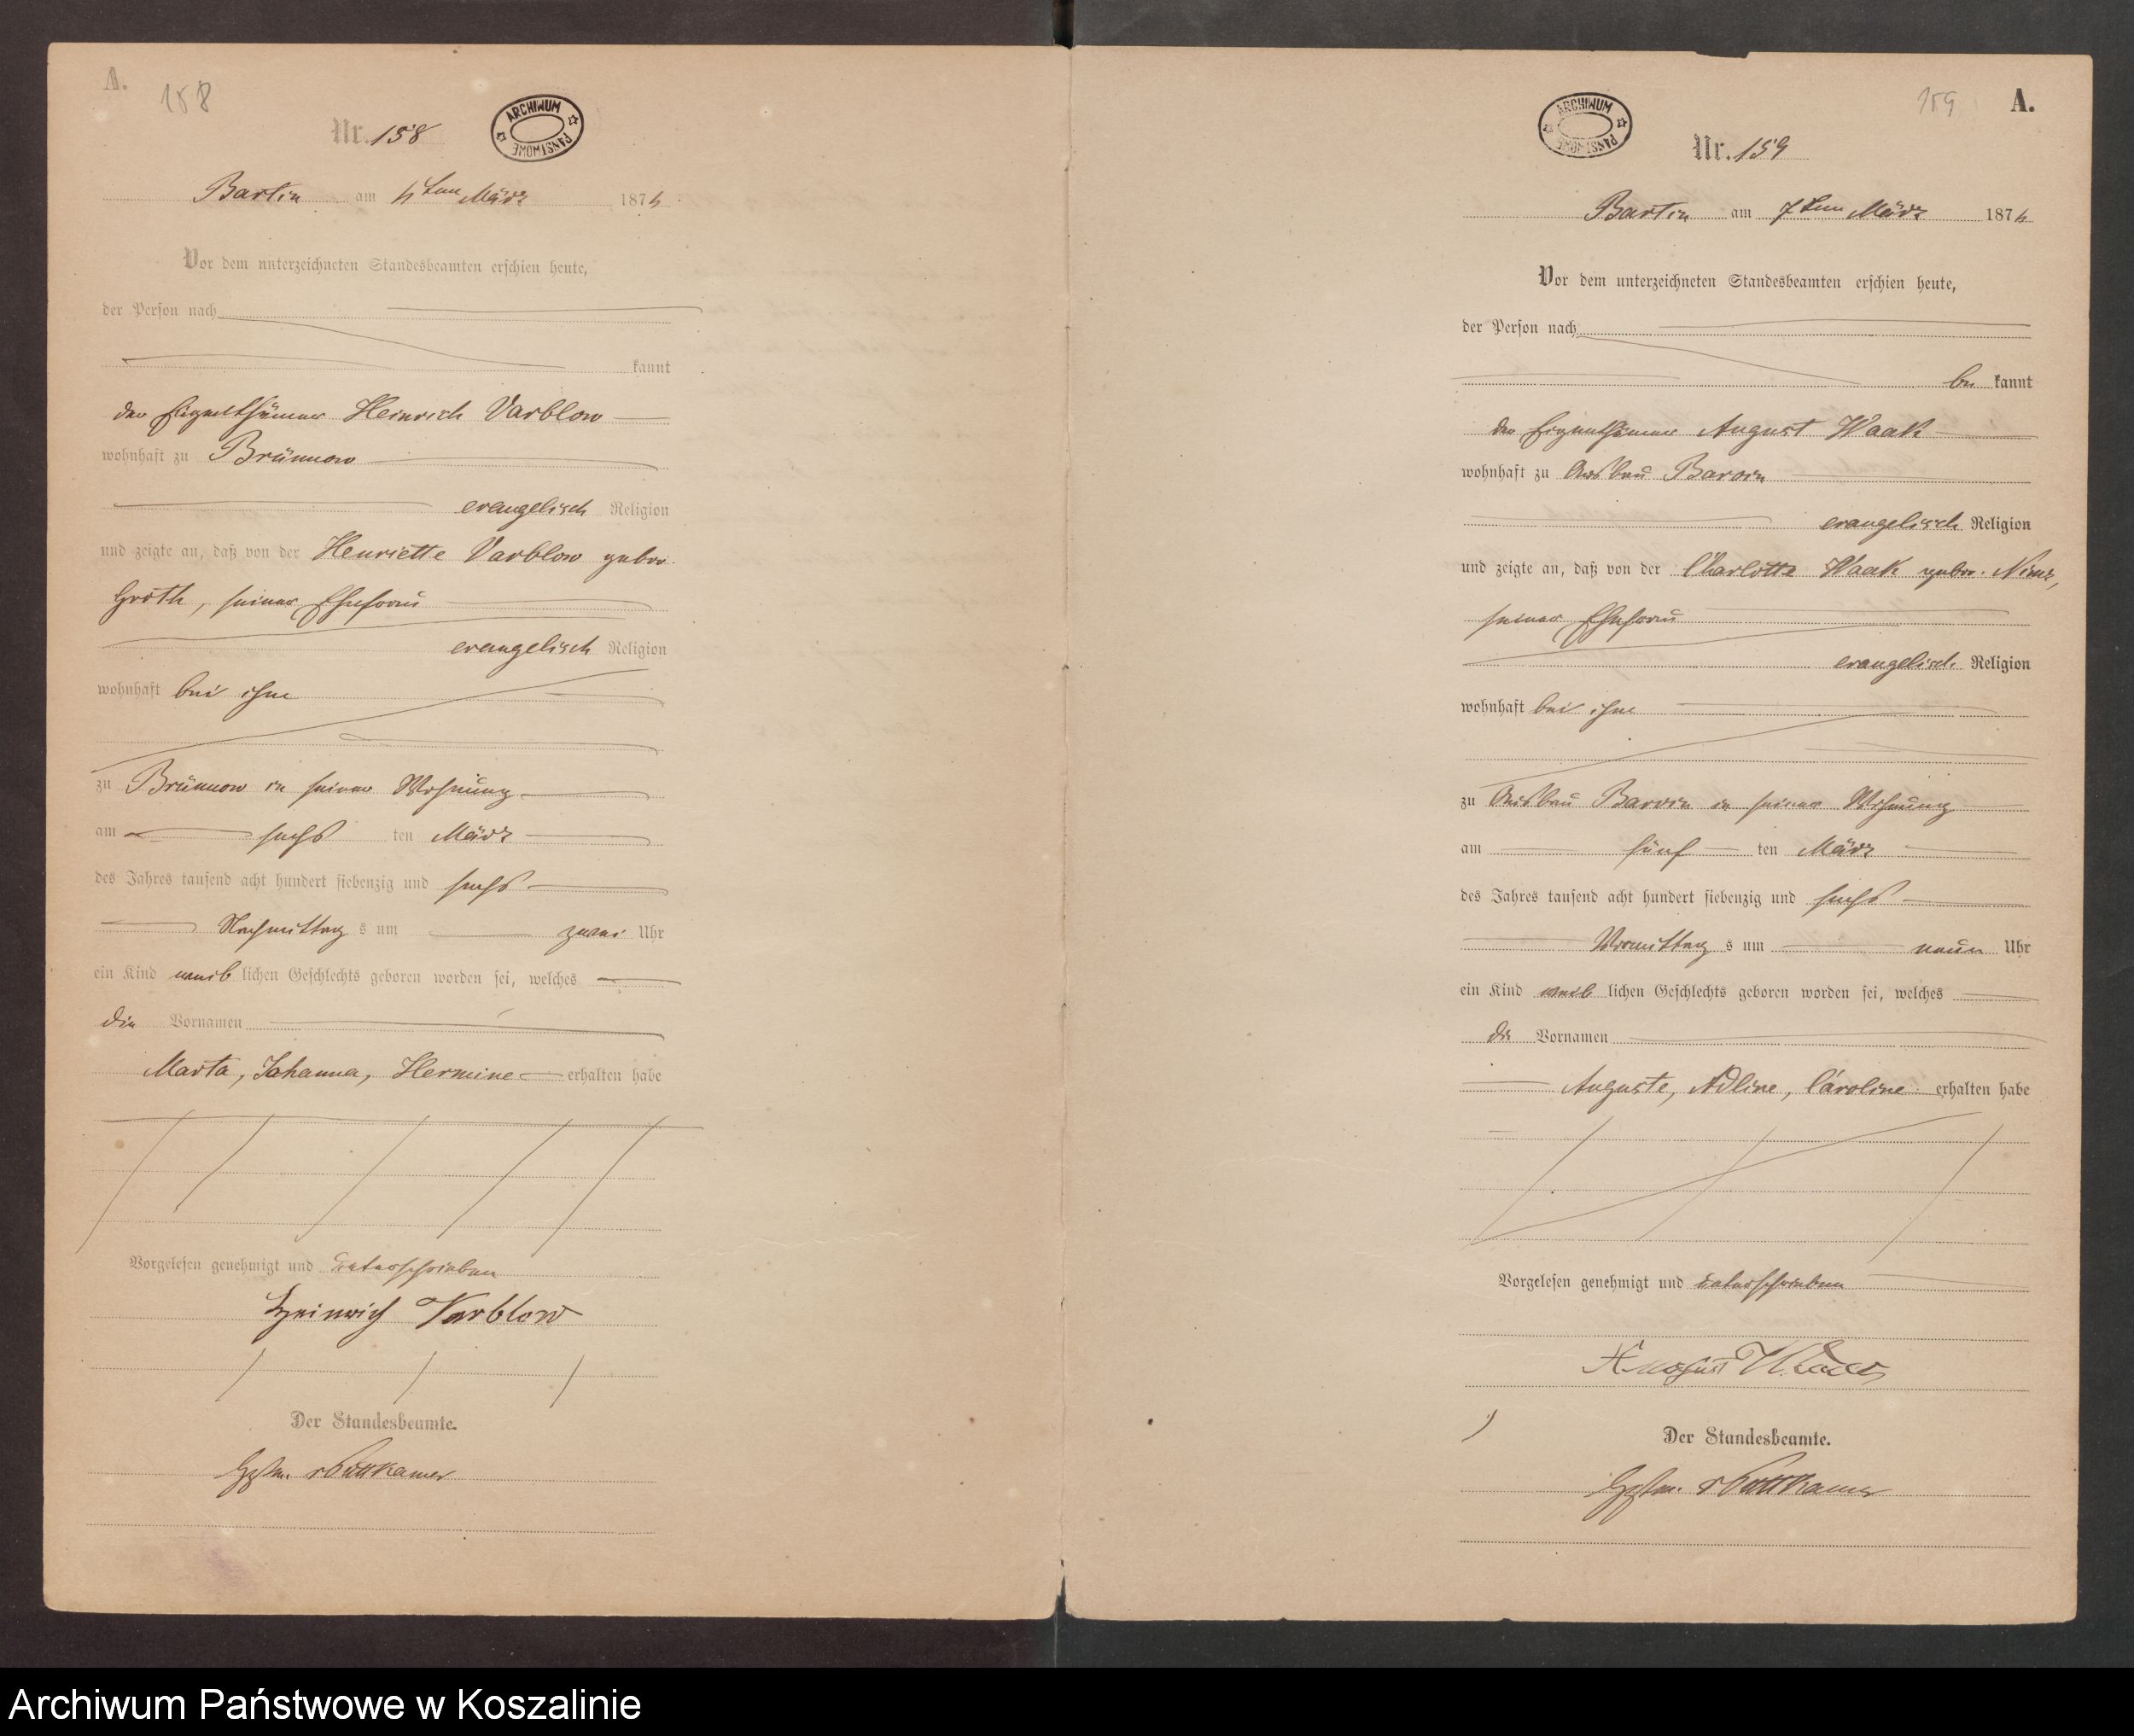 A.
158
Nr. 158
ARCHIWUM PAŃSTWOWE
Bartin am 6ten März 1876
Vor dem unterzeichneten Standesbeamten erschien heute,
der Person nach
kannt
der Eigenthümer Heinrich Varblow
wohnhaft zu Brünnow
evangelisch Religion
und zeigte an, daß von der Henriette Varblow gebor.
Groth, seiner Ehefrau
evangelisch Religion
wohnhaft bei ihm
zu Brünnow in seiner Wohnung
am sechs ten März
des Jahres tausend acht hundert siebenzig und sechs
Nachmittag s um zwei Uhr
ein Kind weib lichen Geschlechts geboren worden sei, welches
die Vornamen
Marta, Johanna, Hermine erhalten habe
Vorgelesen genehmigt und unterschrieben
Heinrich Varblow
Der Standesbeamte.
Puttkamer
159
A.
ARCHIWUM PAŃSTWOWE
Nr. 159
Bartin am 7ten März 1876
Vor dem unterzeichneten Standesbeamten erschien heute,
der Person nach
be kannt
der Eigenthümer August Waak
wohnhaft zu Ausbau Barvin
evangelisch Religion
und zeigte an, daß von der Charlotte Waak gebor.
seiner Ehefrau
evangelisch Religion
wohnhaft bei ihm
zu Ausbau Barvin in seiner Wohnung
am fünf ten März
des Jahres tausend acht hundert siebenzig und sechs
Vormittag s um neun Uhr
ein Kind weib lichen Geschlechts geboren worden sei, welches
die Vornamen
Auguste, Adline, Caroline erhalten habe
Vorgelesen genehmigt und unterschrieben
August Waak
Der Standesbeamte.
Puttkamer
Archiwum Państwowe w Koszalinie